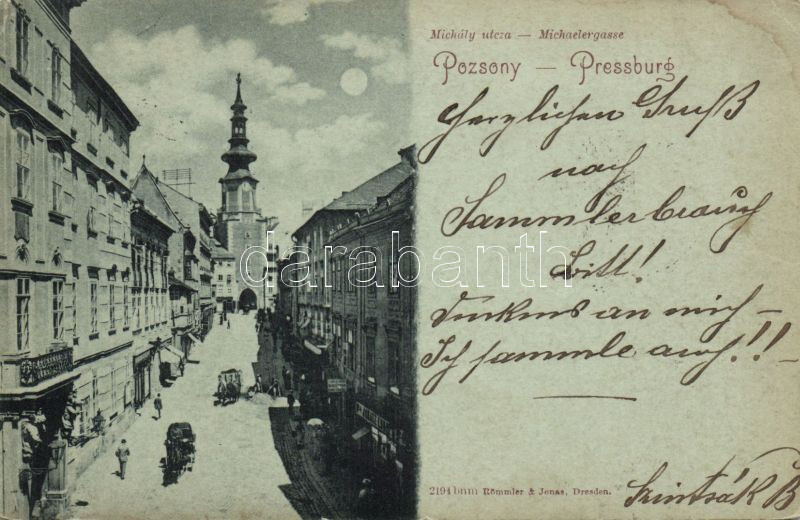 Michály utcza — Michaelergasse
Pozsony — Pressburg
Herzlichen Gruß
nach
Sammlerbrauch
Bitt!
an mich —
Ich sammle auch!!! —
darabanth
2194 bnm Römmler & Jonas, Dresden.